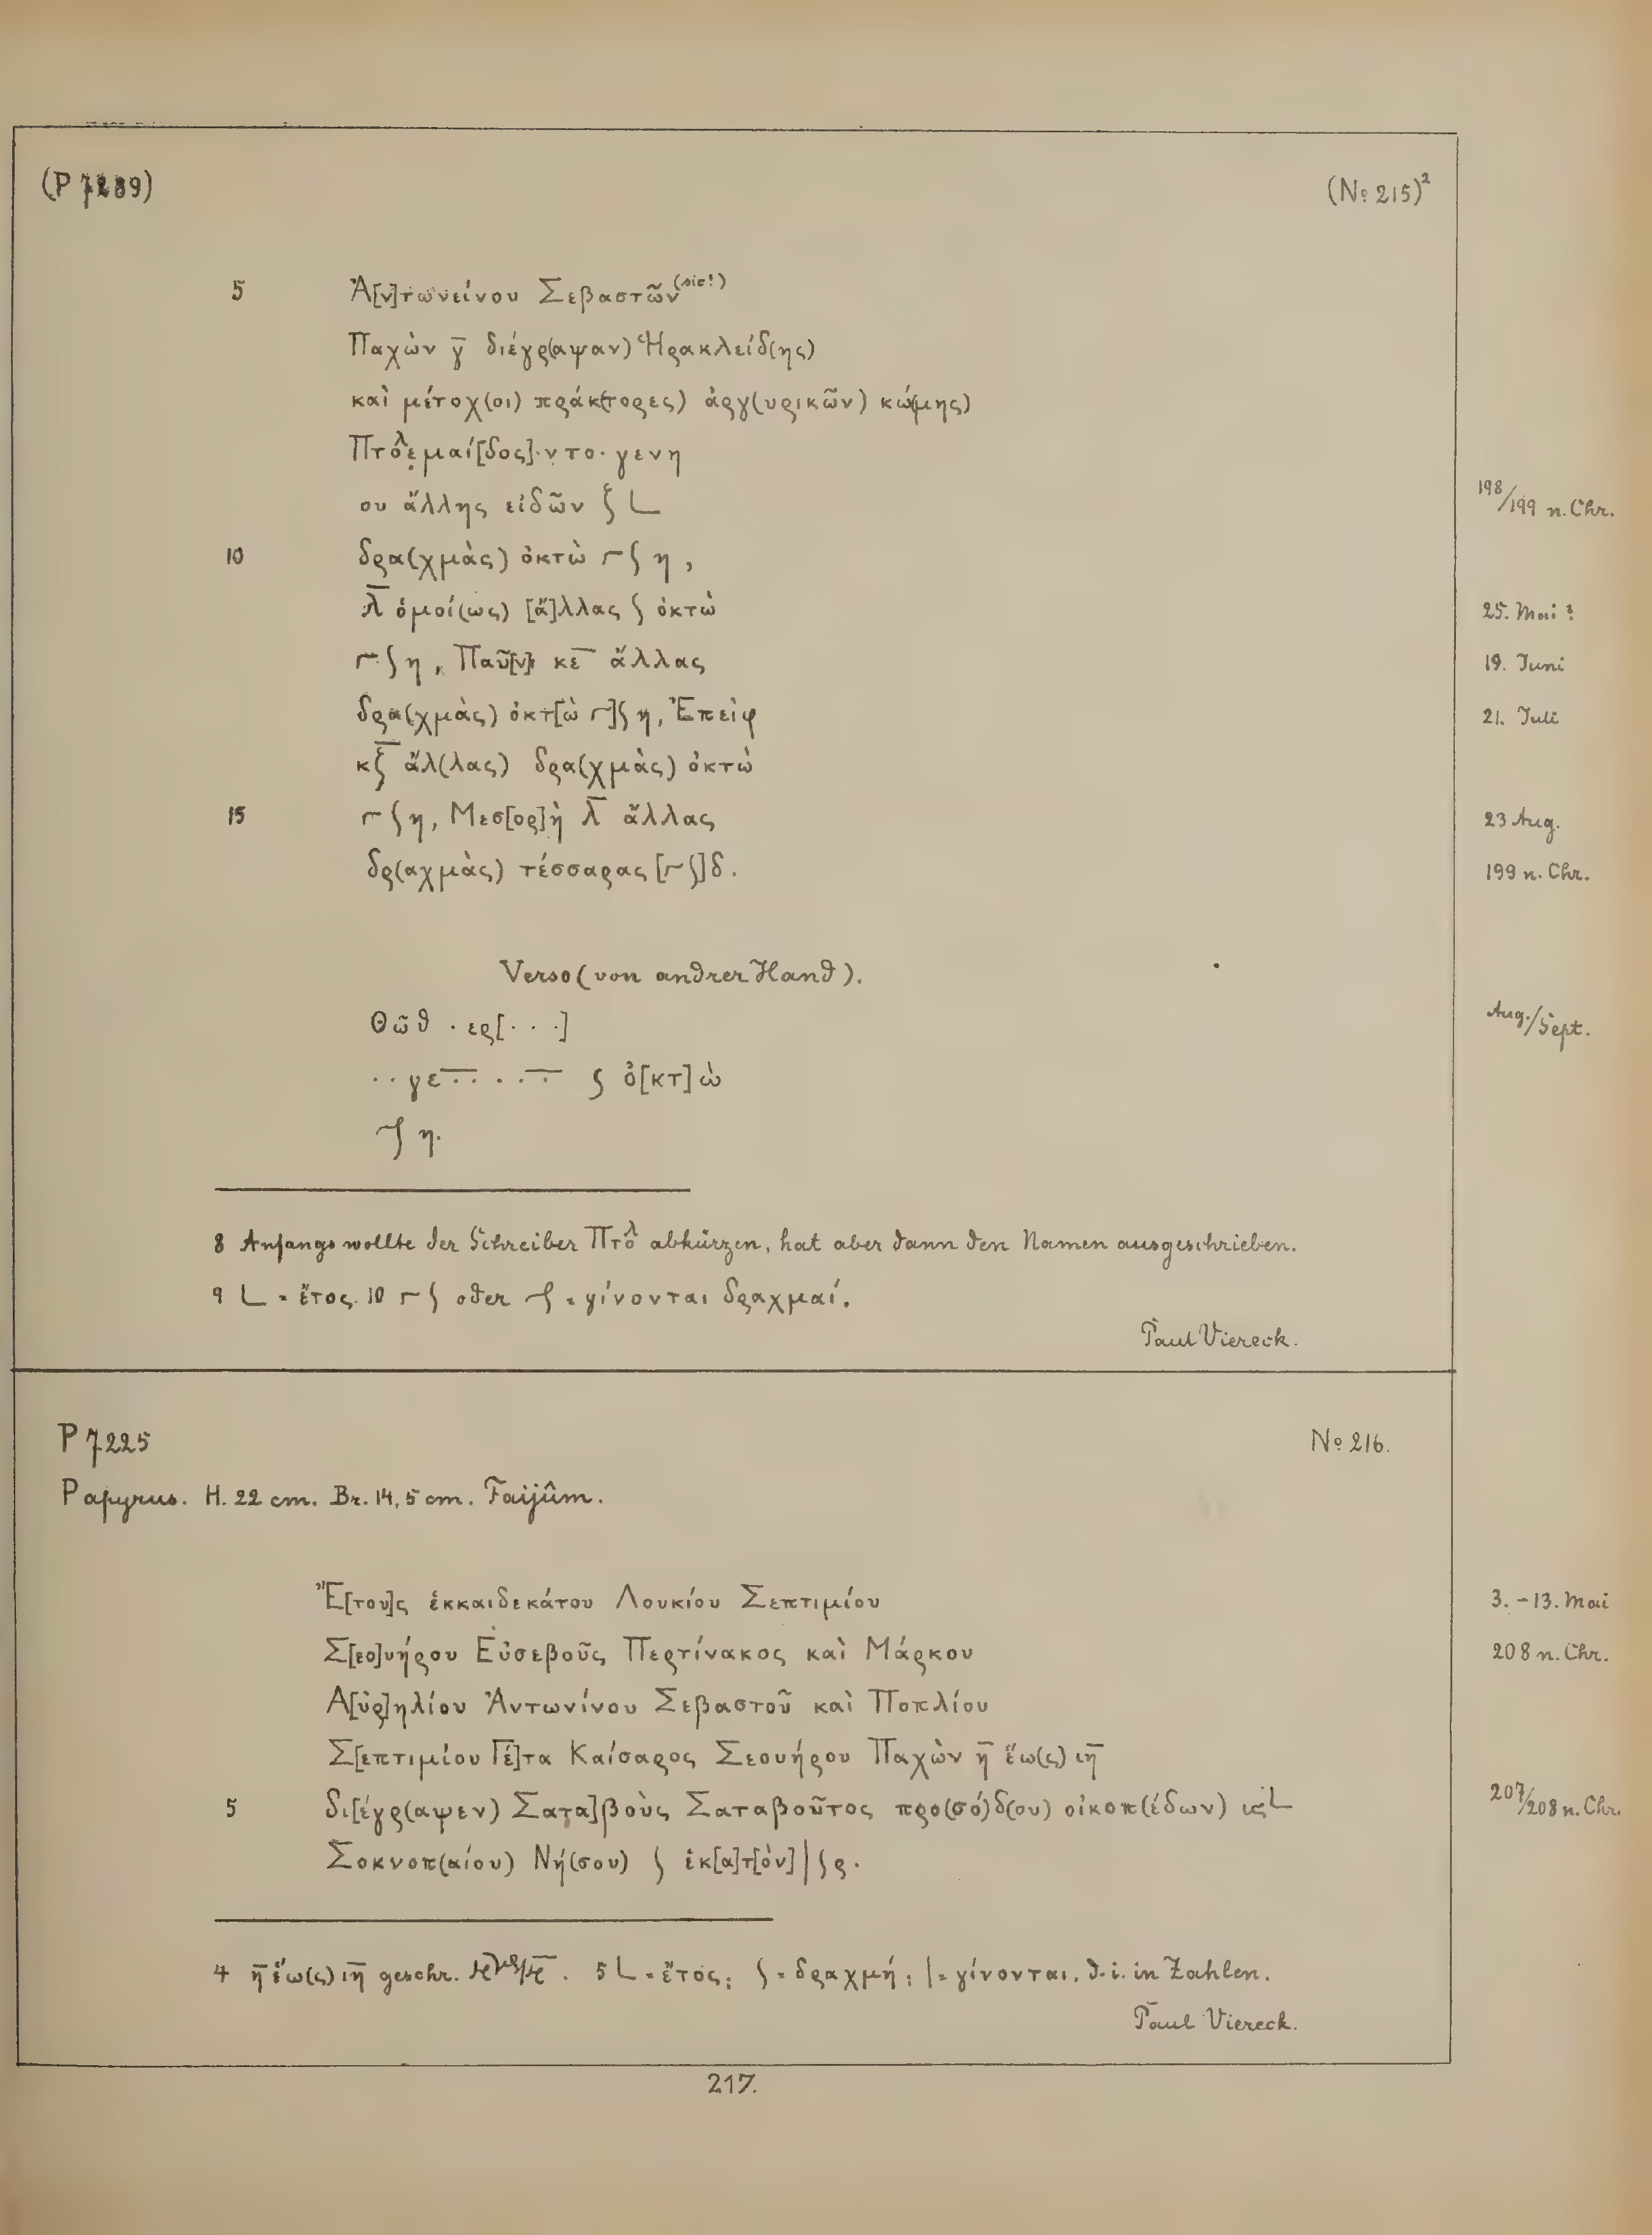 (P 7289) (№ 215)²
5 Ἀ[ν]τωνείνου Σεβαστῶν (sic!)
Παχὼν γ̅ διέγρ(αψαν) Ἡρακλείδ(ης)
καὶ μέτοχ(οι) πράκ(τορες) ἀργ(υρικῶν) κώ(μης)
Πτολεμαί[δος]·ντο· γενη
ου ἄλλης εἰδῶν ζ L 198/199 n. Chr.
10 δρα(χμὰς) ὀκτὼ 𐅻 η,
λ̅ ὁμοί(ως) [ἄ]λλας ʃ ὀκτὼ 25. Mai ?
𐅻 η, Παῦ[ν]ι κε̅ ἄλλας 19. Juni
δρα(χμὰς) ὀκτ[ὼ ┌]ʃ η, Ἐπεὶφ 21. Juli
κζ̅ ἄλ(λας) δρα(χμὰς) ὀκτὼ
15 ┌ʃ η, Μεσ[ορ]ὴ λ̅ ἄλλας 23 Aug.
δρ(αχμὰς) τέσσαρας [┌ʃ]δ. 199 n. Chr.
Verso (von andrer Hand).
Θῶθ · ερ[· · ·] Aug./Sept.
·· γε ·· · ·· ʃ ὀ[κτ]ὼ
┌ʃ η.
8 Anfangs wollte der Schreiber Πτολ abkürzen, hat aber dann den Namen ausgeschrieben.
9 L = ἔτος. 10 ┌ʃ oder ┌ʃ = γίνονται δραχμαί.
Paul Viereck.
P 7225 № 216.
Papyrus. H. 22 cm. Br. 14,5 cm. Faijûm.
Ἔ[του]ς ἑκκαιδεκάτου Λουκίου Σεπτιμίου 3. – 13. Mai
Σ[εο]υήρου Εὐσεβοῦς Περτίνακος καὶ Μάρκου 208 n. Chr.
Α[ὐρ]ηλίου Ἀντωνίνου Σεβαστοῦ καὶ Ποπλίου
Σ[επτιμίου Γέ]τα Καίσαρος Σεουήρου Παχὼν η̅ ἕω(ς) ιη̅
5 δι[έγρ(αψεν) Σατα]βοὺς Σαταβοῦτος προ(σό)δ(ου) οἰκοπ(έδων) ιϛL 207/208 n. Chr.
Σοκνοπ(αίου) Νή(σου) ʃ ἑκ[α]τ[ὸν] | ʃ ρ.
4 η̅ ἕω(ς) ιη̅ geschr. 5 L = ἔτος; ʃ = δραχμή; | = γίνονται, d. i. in Zahlen.
Paul Viereck.
217.